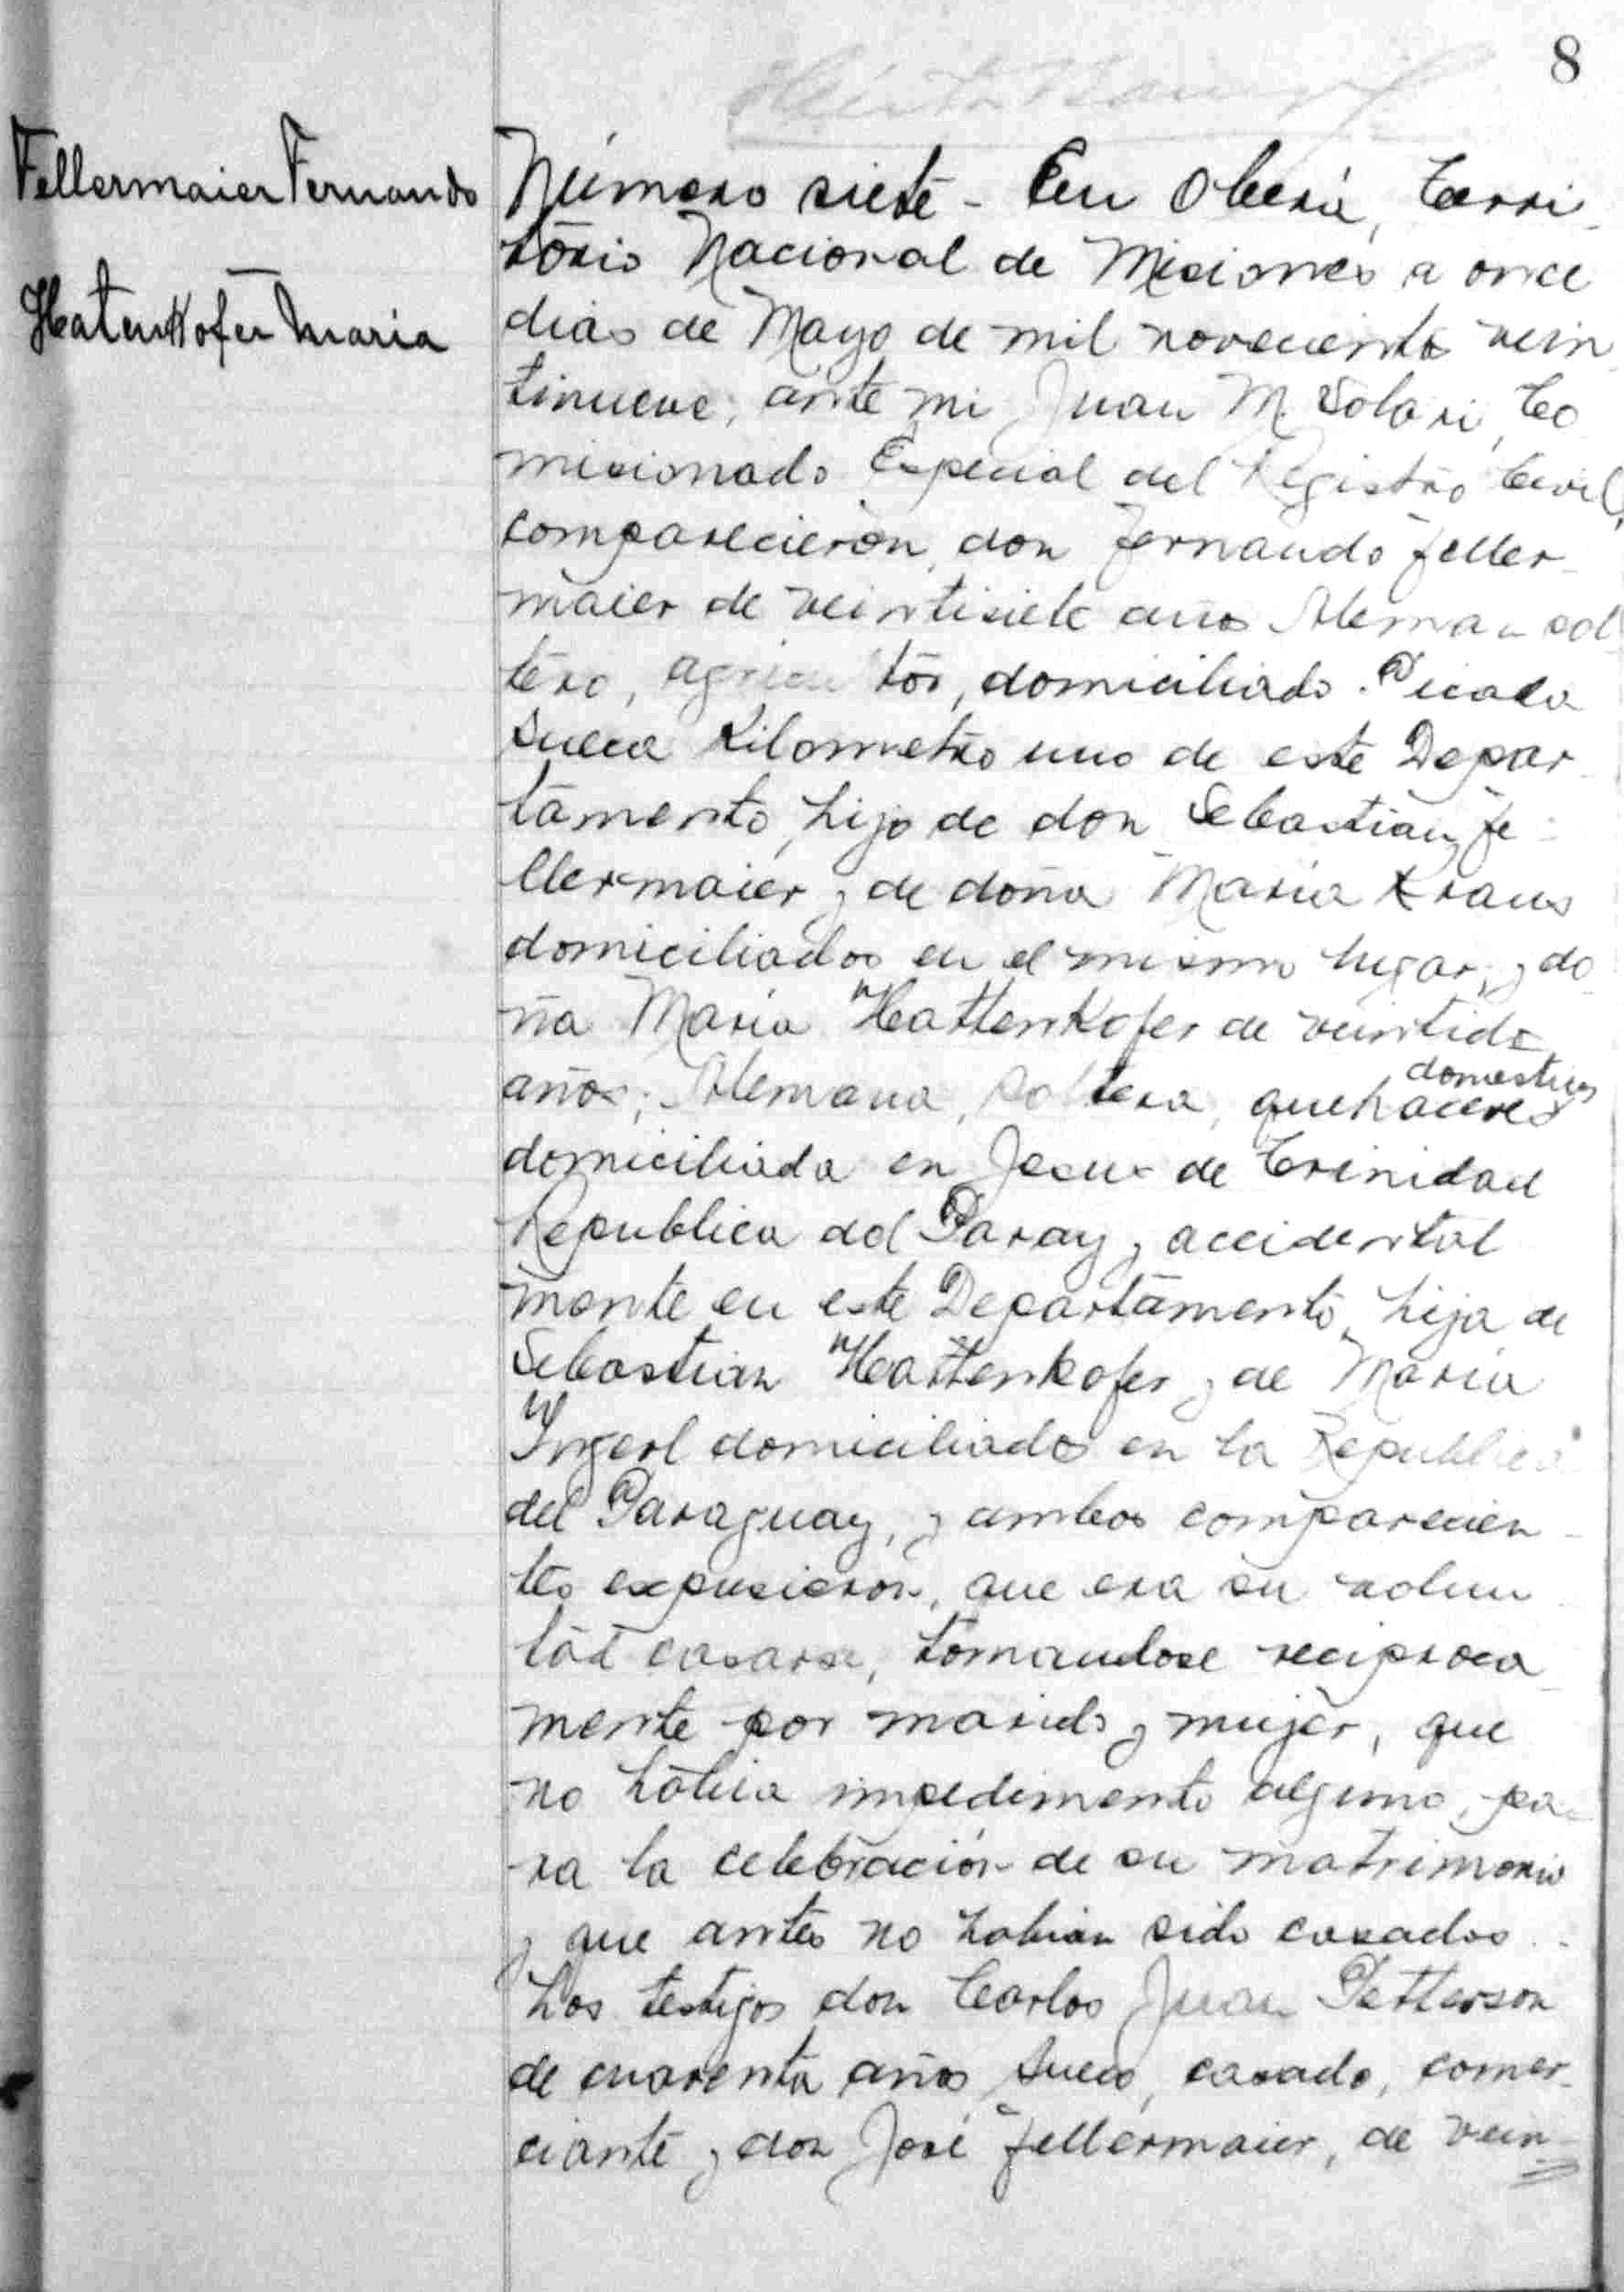 8
Fellermaier Fernando
Hatenkofer Maria
Número siete - En Oberá, Terri
torio Nacional de Misiones a once
dias de Mayo de mil novecientos vein
tinueve, ante mi Juan M. Solari, Co
misionado Especial del Registro Civil,
comparecieron, don Fernando Feller
maier de veintisiete años Aleman sol
tero, agricultor, domiciliado Picada
Sueca Kilometro uno de este Depar
tamento, hijo de don Sebastian Fe
llermaier y de doña Maria Kraus
domiciliados en el mismo lugar, y do
ña Maria "Hattenkofer de veintidos
años, Alemana, soltera, quehaceres domesticos
domiciliada en Jesus de Trinidad
Republica del Paray y accidental
mente en este Departamento, hija de
Sebastian "Hattenkofer y de Maria
"Ingerl domiciliados en la Republica
del Paraguay, y ambos comparecien
tes expusieron, que era su volun
tad casarse, tomandose reciproca
mente por marido y mujer, que
no habia impedimento alguno, pa
ra la celebración de su matrimonio
y que antes no habian sido casados.
Los testigos don Carlos Juan Petterson
de cuarenta años, sueco, casado, comer
ciante y don José Fellermaier, de vein